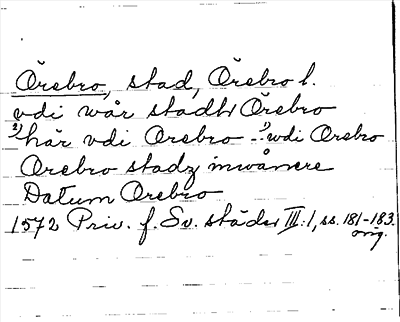 Örebro, stad, Örebro l.
vdi wår stadh Örebro
2) här vdi Orebro - 1) wdi Orebro
Orebro stadz inwånere
Datum Orebro
1572 Priv. f. Sv. städer III:1, ss. 181-183.
orig.